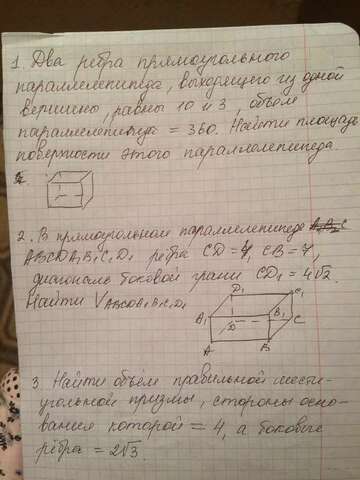 1. Два ребра прямоугольного
параллелепипеда, выходящего из одной
вершины, равны 10 и 3, объем
параллелепипеда = 360. Найти площадь
поверхности этого параллелепипеда.
2. В прямоугольном параллелепипеде
ABCDA₁B₁C₁D₁ ребра CD=4, CB=7,
диагональ боковой грани CD₁=4√2.
Найти V ABCDA₁B₁C₁D₁
D₁ C₁
A₁ B₁
D C
A B
3. Найти объём правильной шести-
угольной призмы, стороны осно-
вания которой = 4, а боковые
рёбра = 2√3.